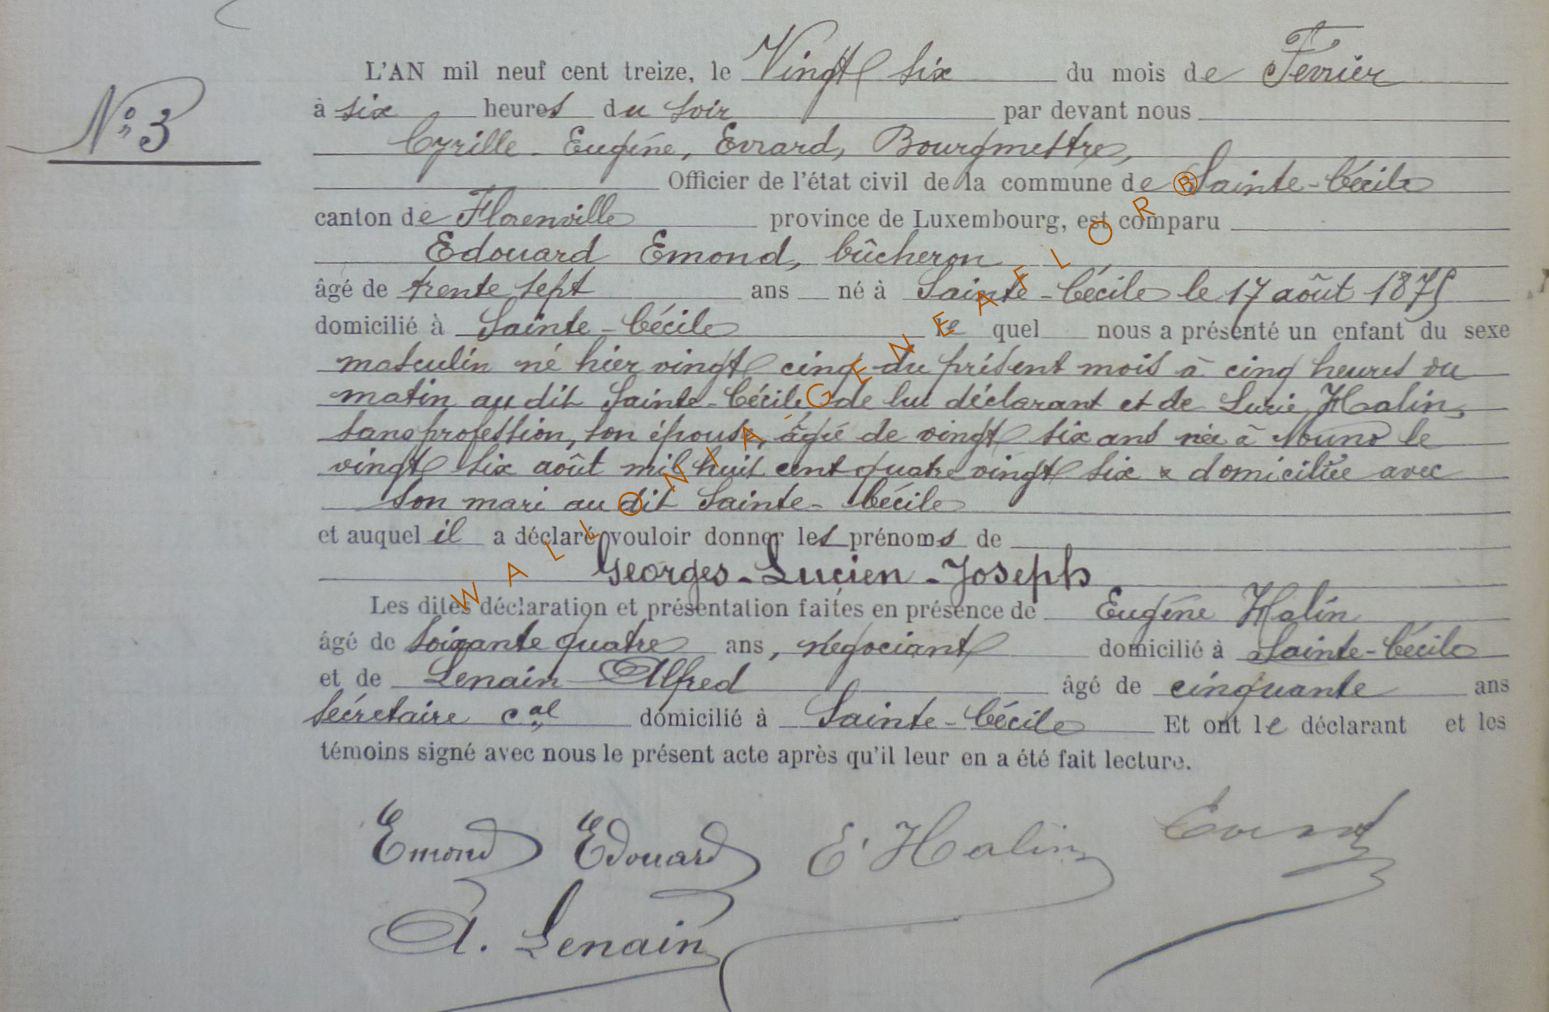 L'AN mil neuf cent treize, le Vingt six du mois de Fevrier
N° 3
à six heures du soir par devant nous
Cyrille Eugéne, Evrard, Bourgmettre,
Officier de l'état civil de la commune de Sainte-Cécile
canton de Florenville province de Luxembourg, est comparu
Edouard Emond, bûcheron
âgé de trente sept ans né à Sainte-Cécile le 17 août 1875
domicilié à Sainte-Cécile le quel nous a présenté un enfant du sexe
masculin né hier vingt cinq du présent mois à cinq heures du
matin au dit Sainte-Cécile de lui déclarant et de Lucie Halin,
sans profession, son épouse, âgée de vingt six ans née à Muno le
vingt six août mil huit cent quatre vingt six & domiciliée avec
son mari au dit Sainte-Cécile
et auquel il a déclaré vouloir donner les prénoms de
Georges-Lucien-Joseph
Les dites déclaration et présentation faites en présence de Eugéne Halin
âgé de soixante quatre ans, négociant domicilié à Sainte-Cécile
et de Lenain Alfred âgé de cinquante ans
Sécretaire cal domicilié à Sainte-Cécile Et ont le déclarant et les
témoins signé avec nous le présent acte après qu'il leur en a été fait lecture.
Emond Edouard E. Halin Evrard
A. Lenain
WALLONIA-GENEAFLOR®